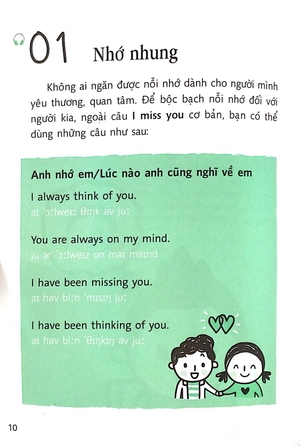 01 Nhớ nhung
Không ai ngăn được nỗi nhớ dành cho người mình
yêu thương, quan tâm. Để bộc bạch nỗi nhớ đối với
người kia, ngoài câu I miss you cơ bản, bạn có thể
dùng những câu như sau:
Anh nhớ em/Lúc nào anh cũng nghĩ về em
I always think of you.
aɪ ˈɔːlweɪz θɪŋk əv juː
You are always on my mind.
ju ər ˈɔːlweɪz ɒn maɪ maɪnd
I have been missing you.
aɪ həv biːn ˈmɪsɪŋ juː
I have been thinking of you.
aɪ həv biːn ˈθɪŋkɪŋ əv juː
10